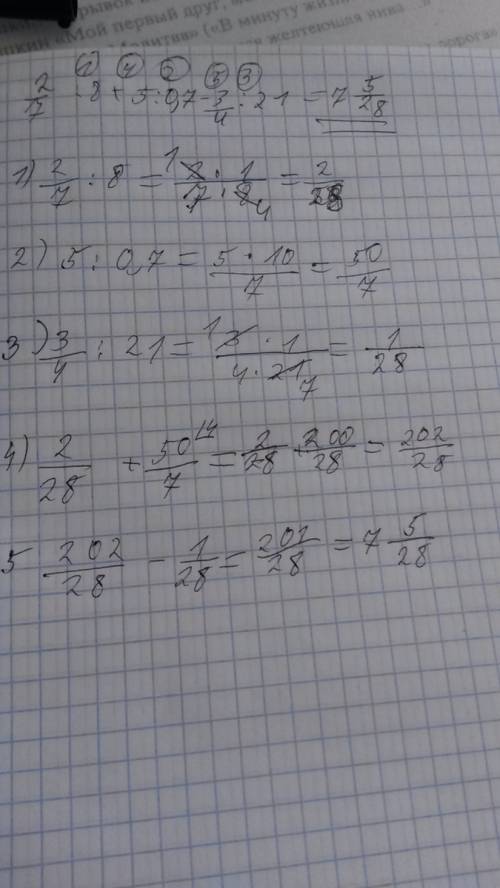 ...рывок и
...шкин «Мой первый друг, м...
Молитва» («В минуту жизн...
желтеющая нива ...»
дорога»
1 4 2 5 3
2/7 : 8 + 5 : 0,7 - 3/4 : 21 = 7 5/28
1) 2/7 : 8 = 1 2 · 1 / 7 · 8 4 = 2/28
2) 5 : 0,7 = 5 · 10 / 7 = 50/7
3) 3/4 : 21 = 1 3 · 1 / 4 · 21 7 = 1/28
4) 2/28 + 50/7 = 2/28 + 200/28 = 202/28
5 202/28 - 1/28 = 201/28 = 7 5/28